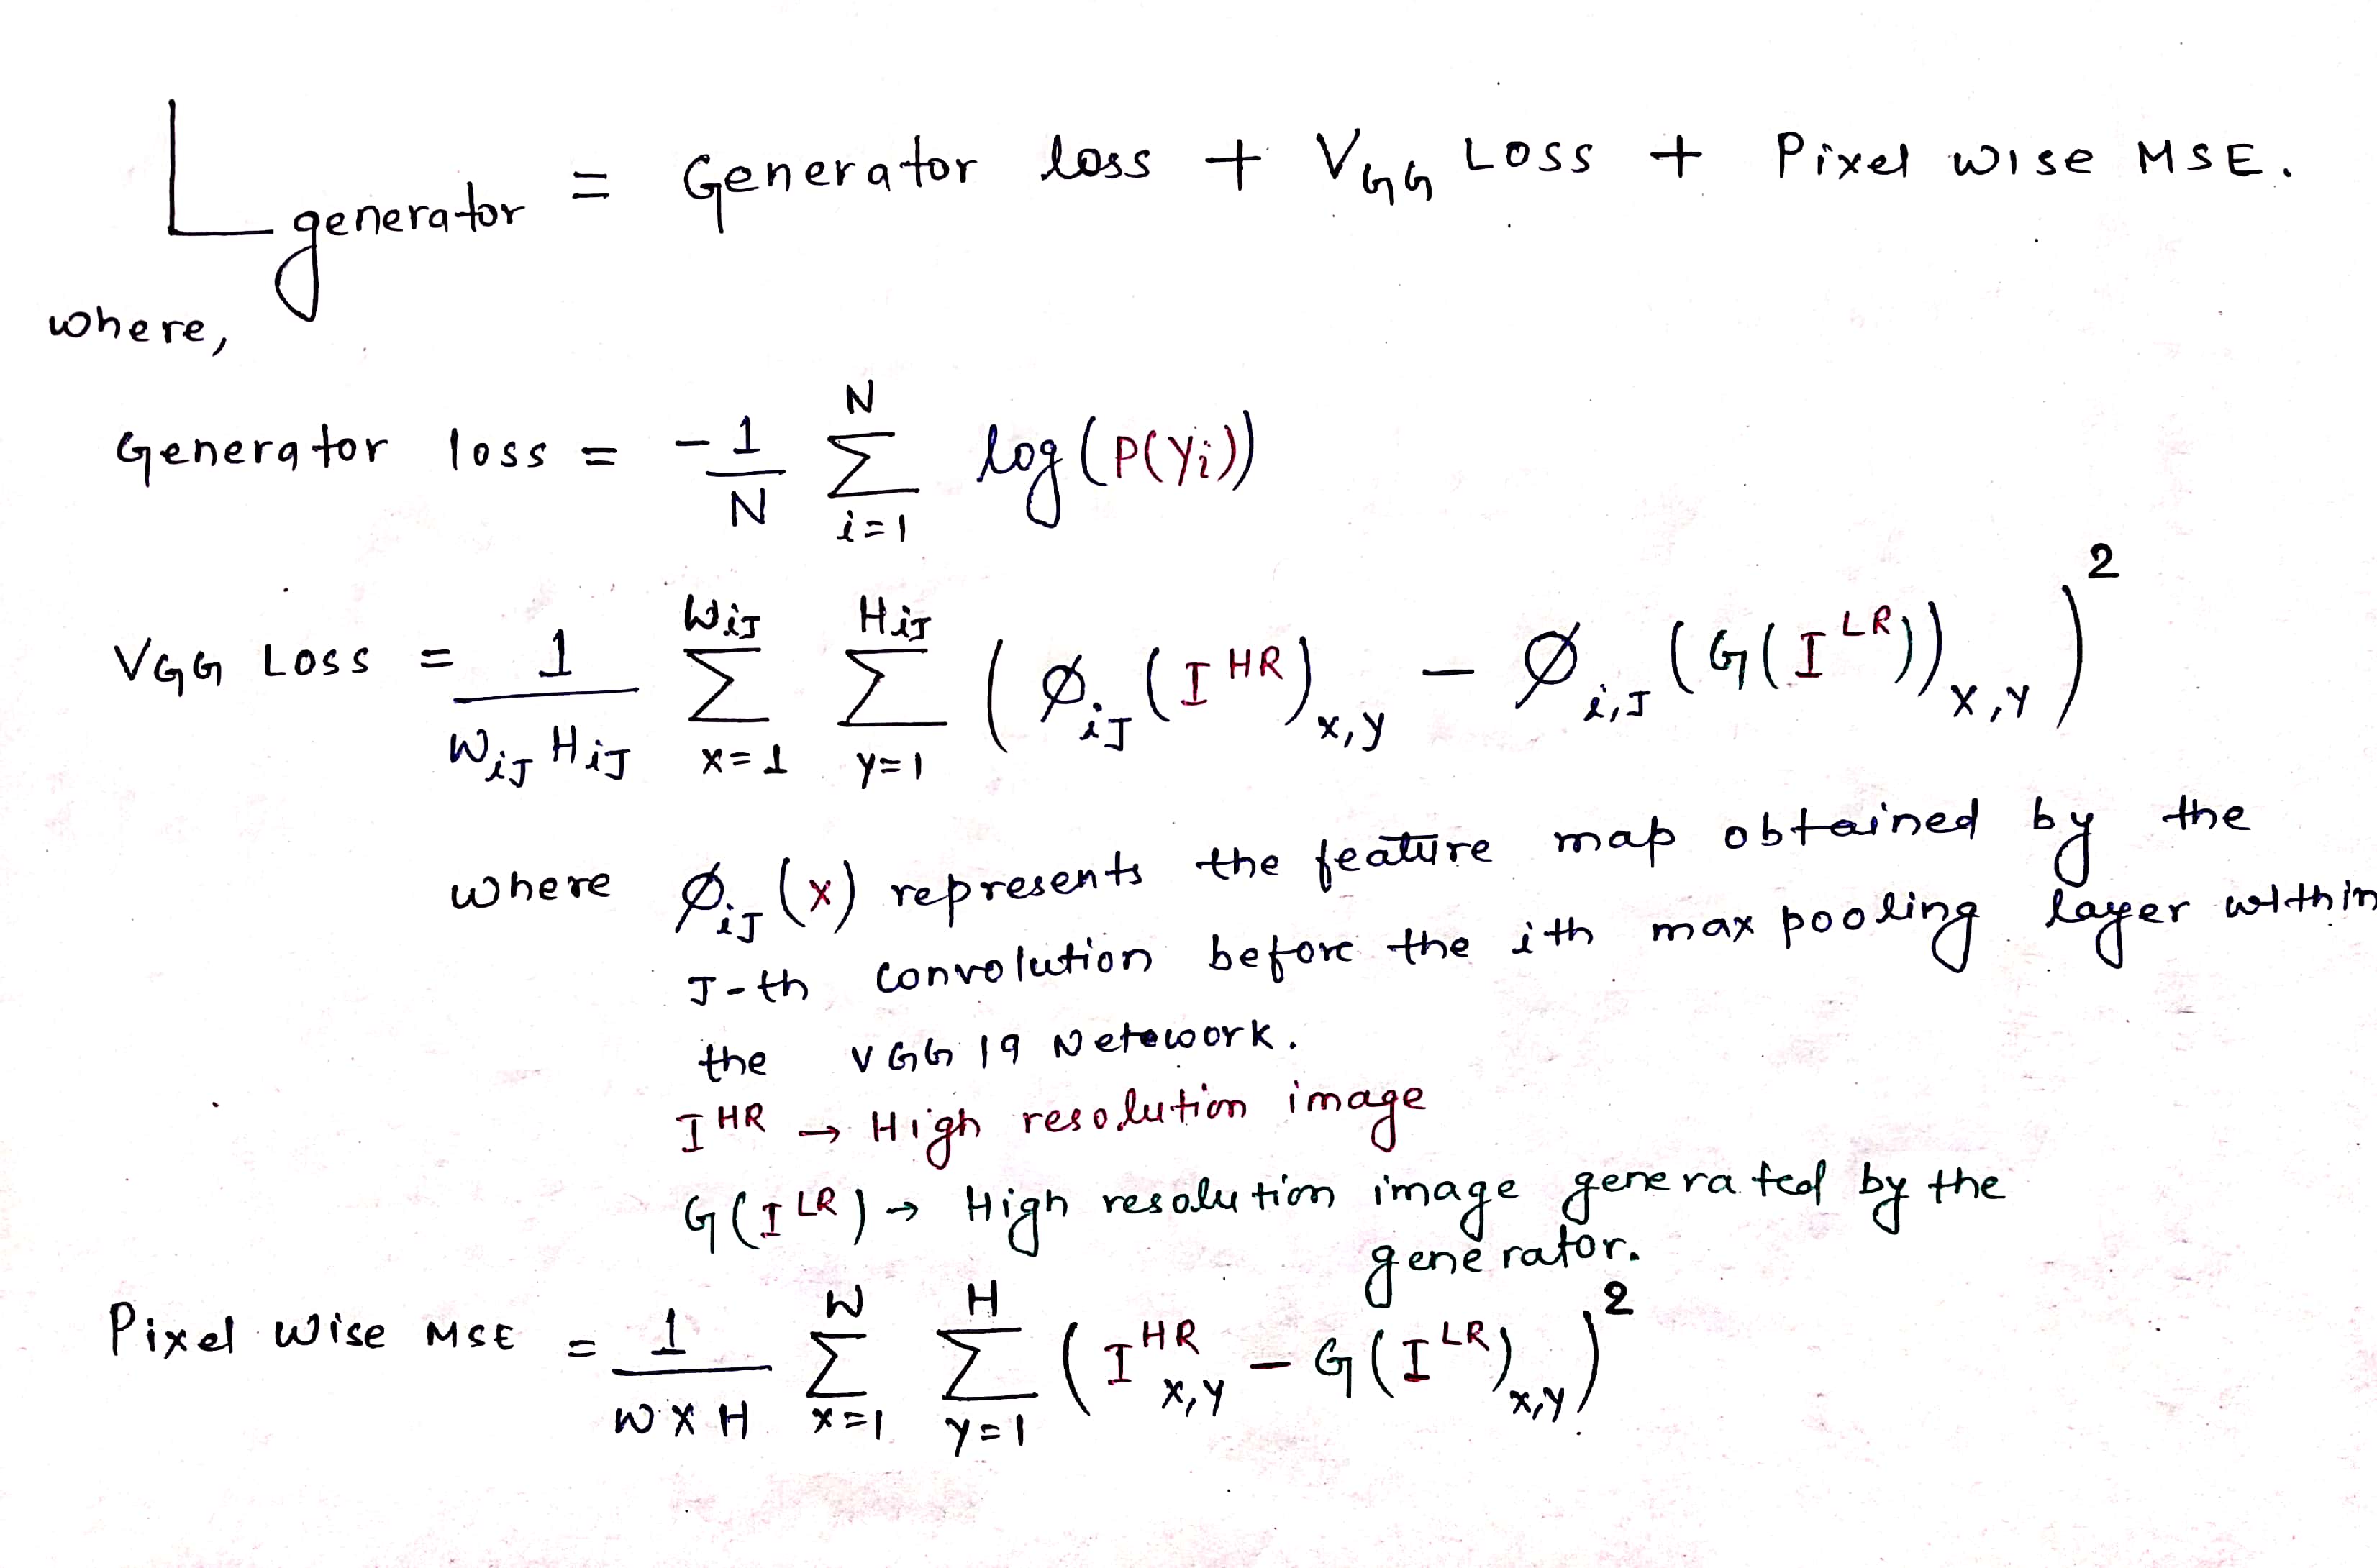 L generator = Generator loss + VGG LOSS + Pixel wise MSE.
where,
Generator loss = -1/N Σ_{i=1}^{N} log(P(Yi))
VGG LOSS = 1/(W_{iJ} H_{iJ}) Σ_{x=1}^{W_{iJ}} Σ_{y=1}^{H_{iJ}} (Ø_{iJ}(I^{HR})_{x,y} - Ø_{i,J}(G(I^{LR}))_{x,y})^2
where Ø_{iJ}(x) represents the feature map obtained by the
J-th convolution before the ith max pooling layer within
the VGG 19 Netework.
I^{HR} → High resolution image
G(I^{LR}) → High resolution image generated by the
generator.
Pixel wise MSE = 1/(W X H) Σ_{x=1}^{W} Σ_{y=1}^{H} (I^{HR}_{x,y} - G(I^{LR})_{x,y})^2